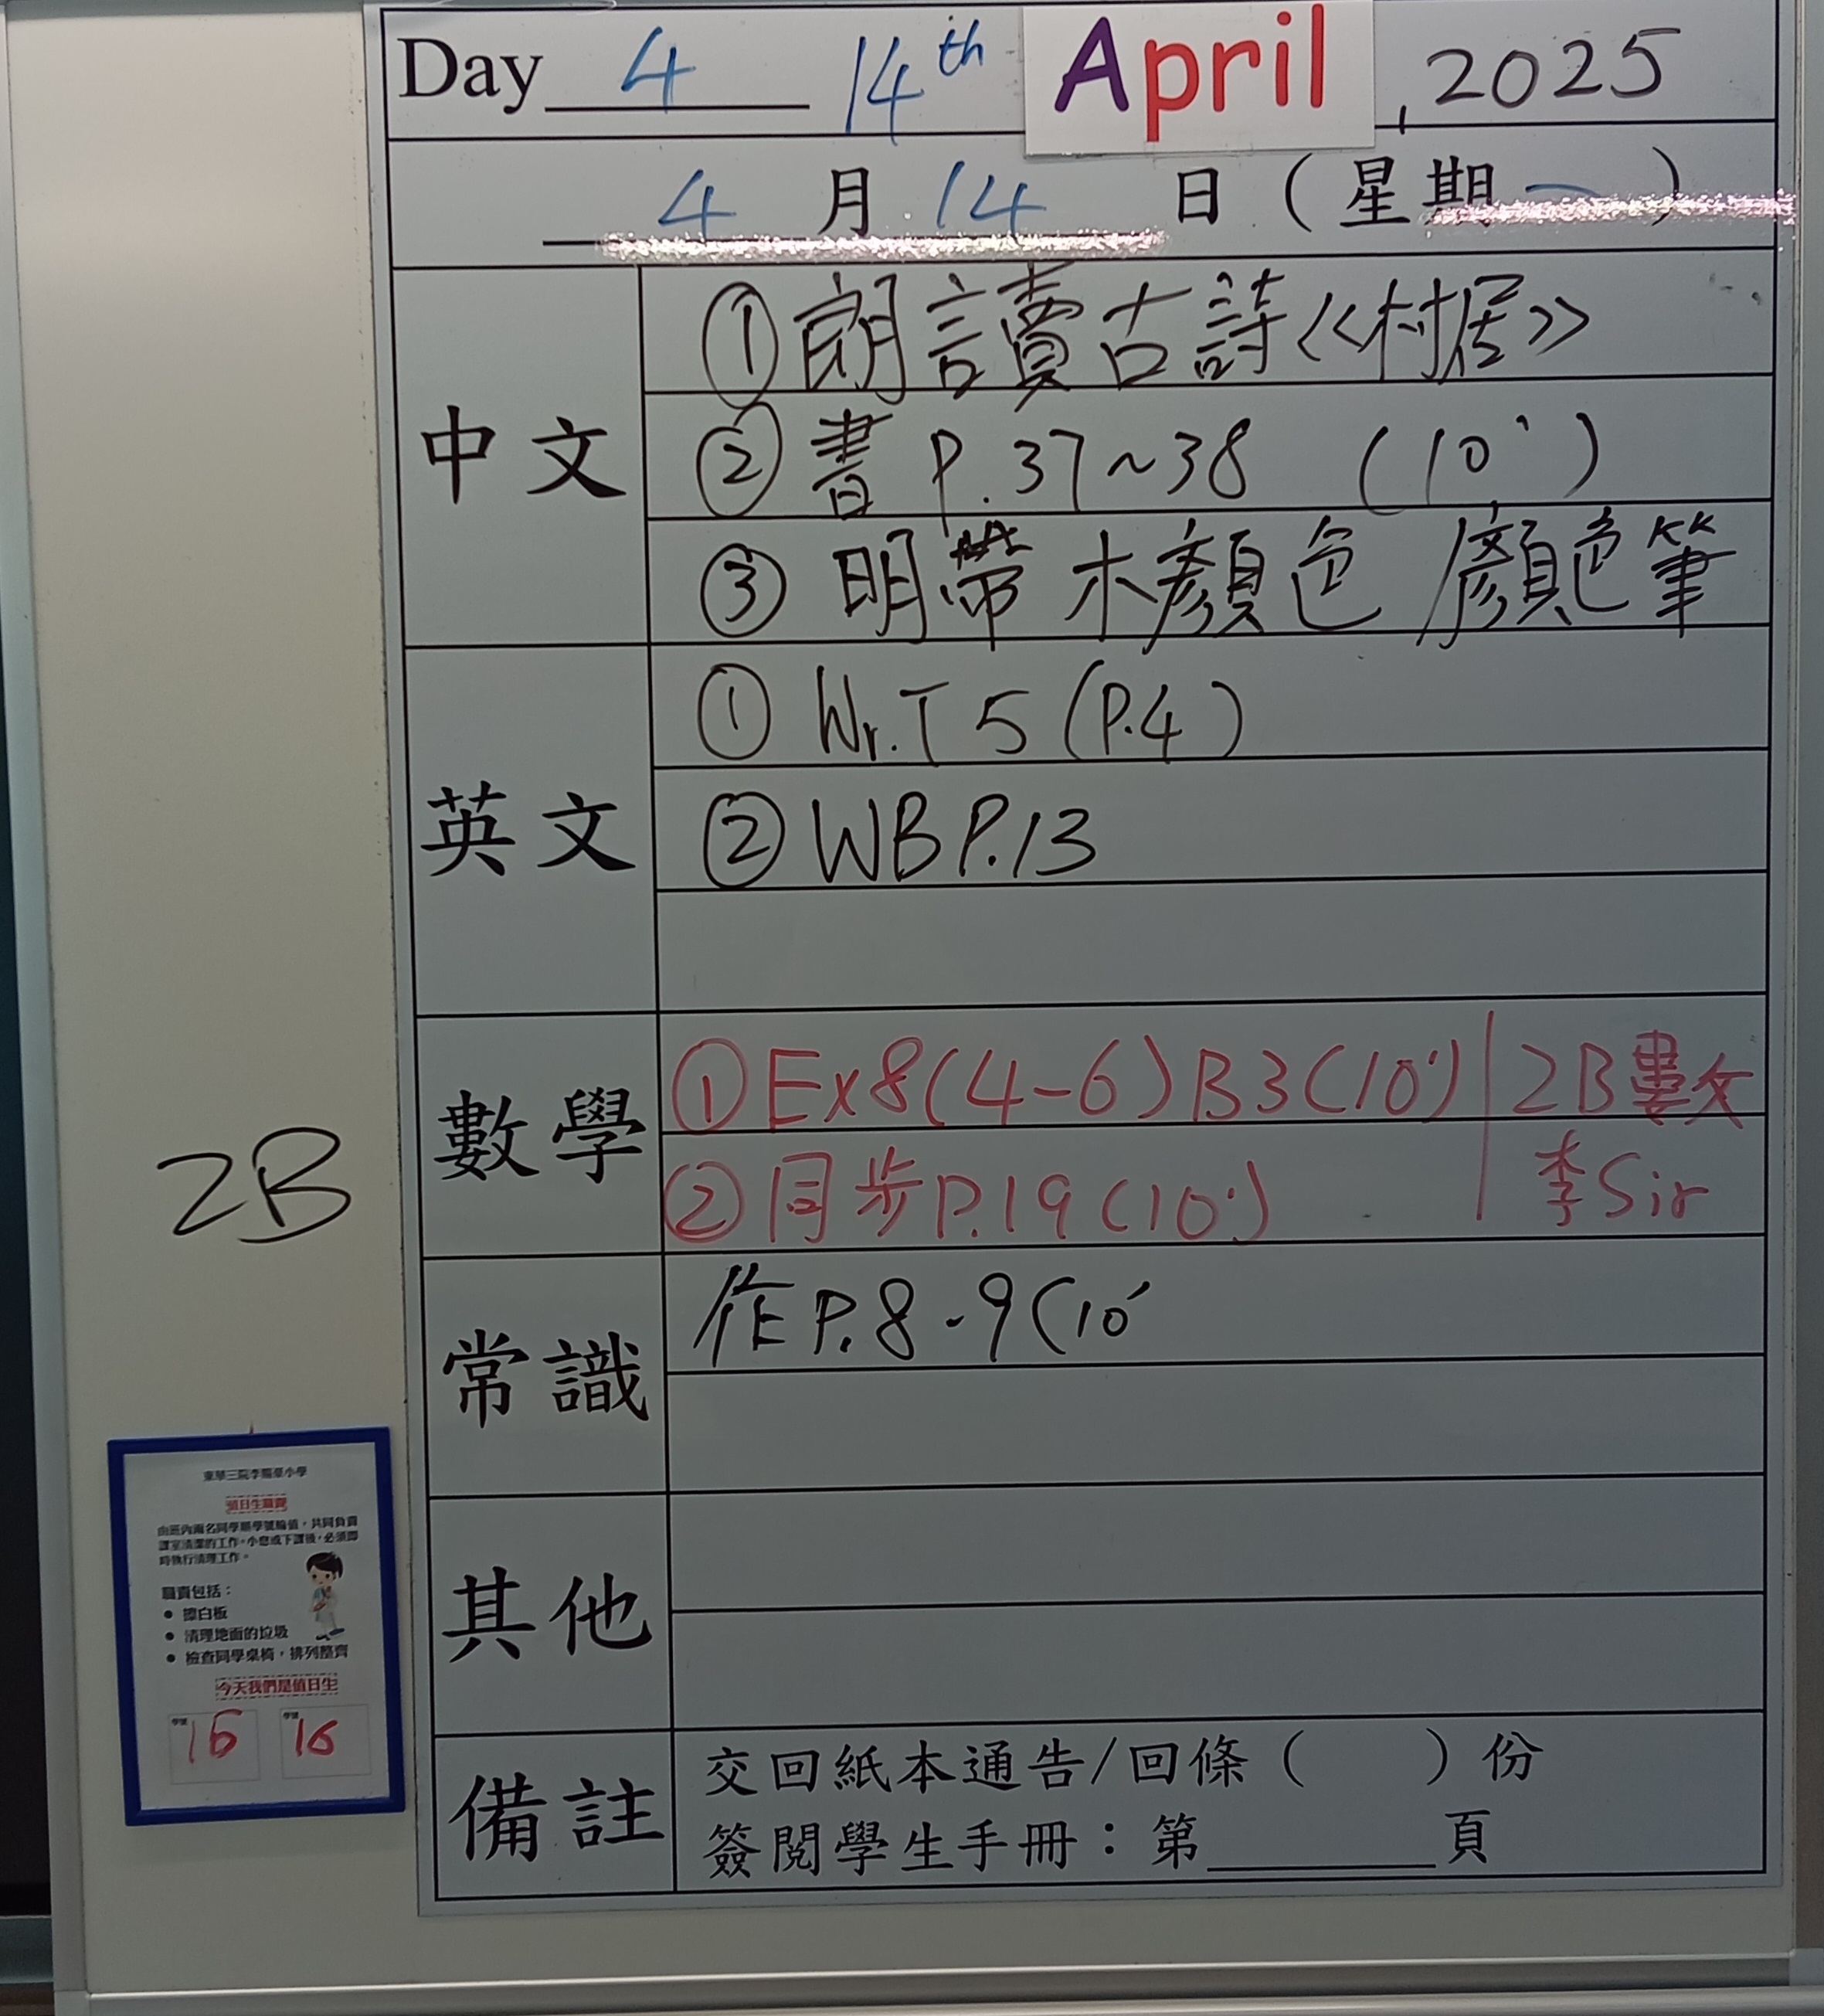 Day 4 14th April, 2025
4 月 14 日 (星期一)
中文
①朗讀古詩《村居》
②書 P.37~38 (10')
③明帶木顏色/顏色筆
英文
① Wr.T 5 (P.4)
② WB P.13
數學
①Ex8(4-6)B3(10') | 2B 數
②同步P.19(10') | 李Sir
2B
常識
作P.8-9(10'
其他
備註
交回紙本通告/回條( )份
簽閱學生手冊:第______頁
值日生職責
由班內兩名同學順學號輪值,共同負責
課室清潔的工作。小息或下課後,必須即
時執行清理工作。
職責包括:
● 擦白板
● 清理地面的垃圾
● 檢查同學桌椅,排列整齊
今天我們是值日生
學號 15 學號 16